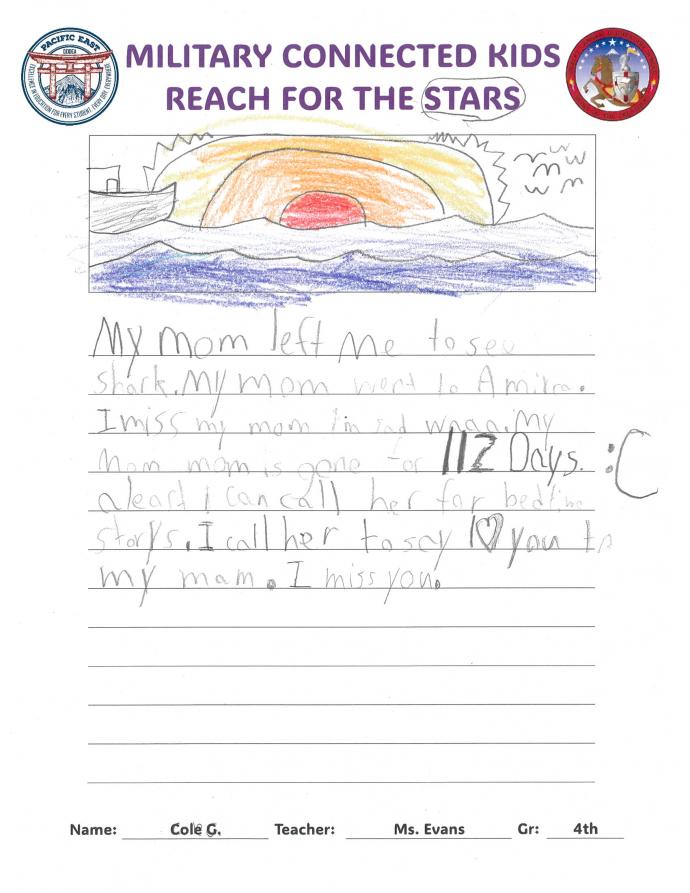 PACIFIC EAST
DODEA
EXCELLENCE IN EDUCATION FOR EVERY STUDENT, EVERY DAY, EVERYWHERE
MILITARY CONNECTED KIDS
REACH FOR THE STARS
My mom left me to see
shark. My mom went to Amirca.
I miss my mom I'm sad waaa. My
mom mom is gone for 112 Days. :C
aleart i can call her for bedtime
storys. I call her to say I ♡ you to
my mam. I miss you.
Name: Cole G. Teacher: Ms. Evans Gr: 4th